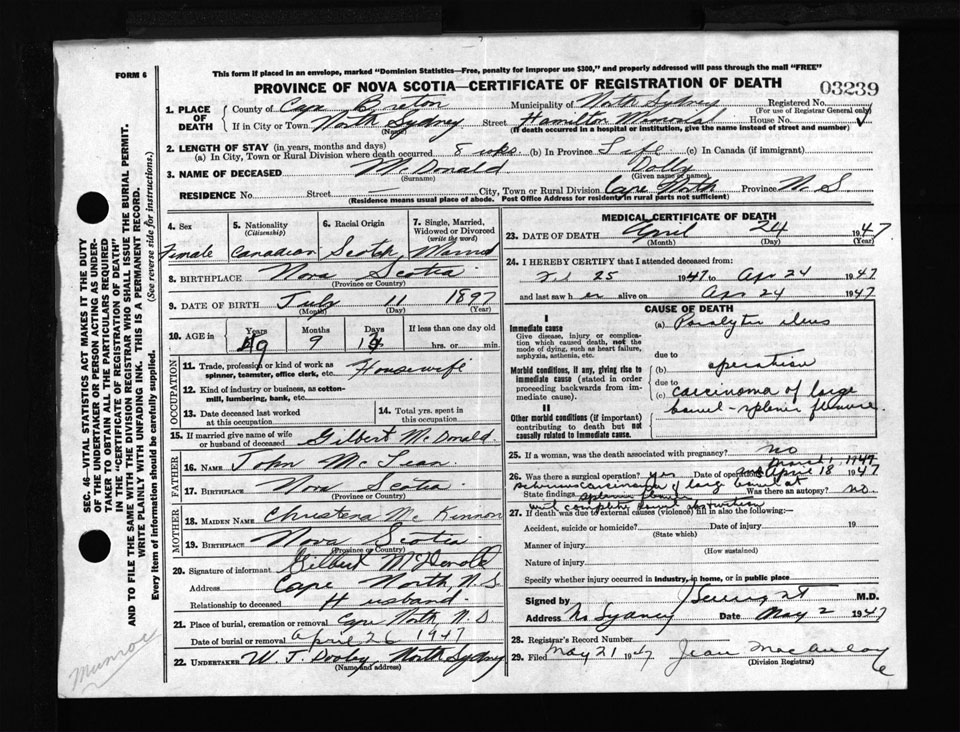 FORM 6
This form if placed in an envelope, marked "Dominion Statistics—Free, penalty for improper use $300," and properly addressed will pass through the mail "FREE"
PROVINCE OF NOVA SCOTIA—CERTIFICATE OF REGISTRATION OF DEATH
03239
1. PLACE OF DEATH
County of Cape Breton Municipality of North Sydney Registered No.
(For use of Registrar General only)
If in City or Town North Sydney Street Hamilton Memorial House No.
(Name) (If death occurred in a hospital or institution, give the name instead of street and number)
2. LENGTH OF STAY (in years, months and days)
(a) In City, Town or Rural Division where death occurred 8 wks. (b) In Province Life (c) In Canada (if immigrant)
3. NAME OF DECEASED McDonald Dolly
(Surname) (Given name or names)
RESIDENCE No. Street — City, Town or Rural Division Cape North Province N.S
(Residence means usual place of abode. Post Office Address for residents in rural parts not sufficient)
4. Sex Female
5. Nationality (Citizenship) Canadian
6. Racial Origin Scotch
7. Single, Married, Widowed or Divorced (write the word) Married
8. BIRTHPLACE Nova Scotia
(Province or Country)
9. DATE OF BIRTH July 11 1897
(Month) (Day) (Year)
10. AGE in Years Months Days If less than one day old
49 9 13 hrs. or min.
OCCUPATION
11. Trade, profession or kind of work as spinner, teamster, office clerk, etc. Housewife
12. Kind of industry or business, as cotton-mill, lumbering, bank, etc.
13. Date deceased last worked at this occupation
14. Total yrs. spent in this occupation
15. If married give name of wife or husband of deceased Gilbert McDonald
FATHER
16. NAME John McLean
17. BIRTHPLACE Nova Scotia
(Province or Country)
MOTHER
18. MAIDEN NAME Christena McKinnon
19. BIRTHPLACE Nova Scotia
(Province or Country)
20. Signature of informant Gilbert McDonald
Address Cape North, N.S.
Relationship to deceased Husband
21. Place of burial, cremation or removal Cape North, N.S.
Date of burial or removal April 26 1947
22. UNDERTAKER W. J. Dooley, North Sydney
(Name and address)
MEDICAL CERTIFICATE OF DEATH
23. DATE OF DEATH April 24 1947
(Month) (Day) (Year)
24. I HEREBY CERTIFY that I attended deceased from:
Feb 25 1947 to Apr 24 1947
and last saw her alive on Apr 24 1947
CAUSE OF DEATH
I
Immediate cause
Give disease, injury or complication which caused death, not the mode of dying, such as heart failure, asphyxia, asthenia, etc.
(a) Paralytic ileus
due to
Morbid conditions, if any, giving rise to immediate cause (stated in order proceeding backwards from immediate cause).
(b) operation
due to
(c) carcinoma of large bowel - splenic flexure.
II
Other morbid conditions (if important) contributing to death but not causally related to immediate cause.
25. If a woman, was the death associated with pregnancy? no
26. Was there a surgical operation? yes Date of operation March 1, 1947 and April 18 1947
State findings Schirrus carcinoma of large bowel at splenic flexure with complete bowel obstruction
Was there an autopsy? no.
27. If death was due to external causes (violence) fill in also the following:—
Accident, suicide or homicide? Date of injury 19
(State which)
Manner of injury
(How sustained)
Nature of injury
Specify whether injury occurred in industry, in home, or in public place
Signed by M.D.
Address No Sydney Date May 2 1947
28. Registrar's Record Number
29. Filed May 21 1947 Jean MacAulay
(Division Registrar)
6
SEC. 46—VITAL STATISTICS ACT MAKES IT THE DUTY
OF THE UNDERTAKER OR PERSON ACTING AS UNDER-
TAKER TO OBTAIN ALL THE PARTICULARS REQUIRED
IN THE "CERTIFICATE OF REGISTRATION OF DEATH"
AND TO FILE THE SAME WITH THE DIVISION REGISTRAR WHO SHALL ISSUE THE BURIAL PERMIT.
WRITE PLAINLY WITH UNFADING INK. THIS IS A PERMANENT RECORD.
Every item of information should be carefully supplied. (See reverse side for instructions.)
Munroe